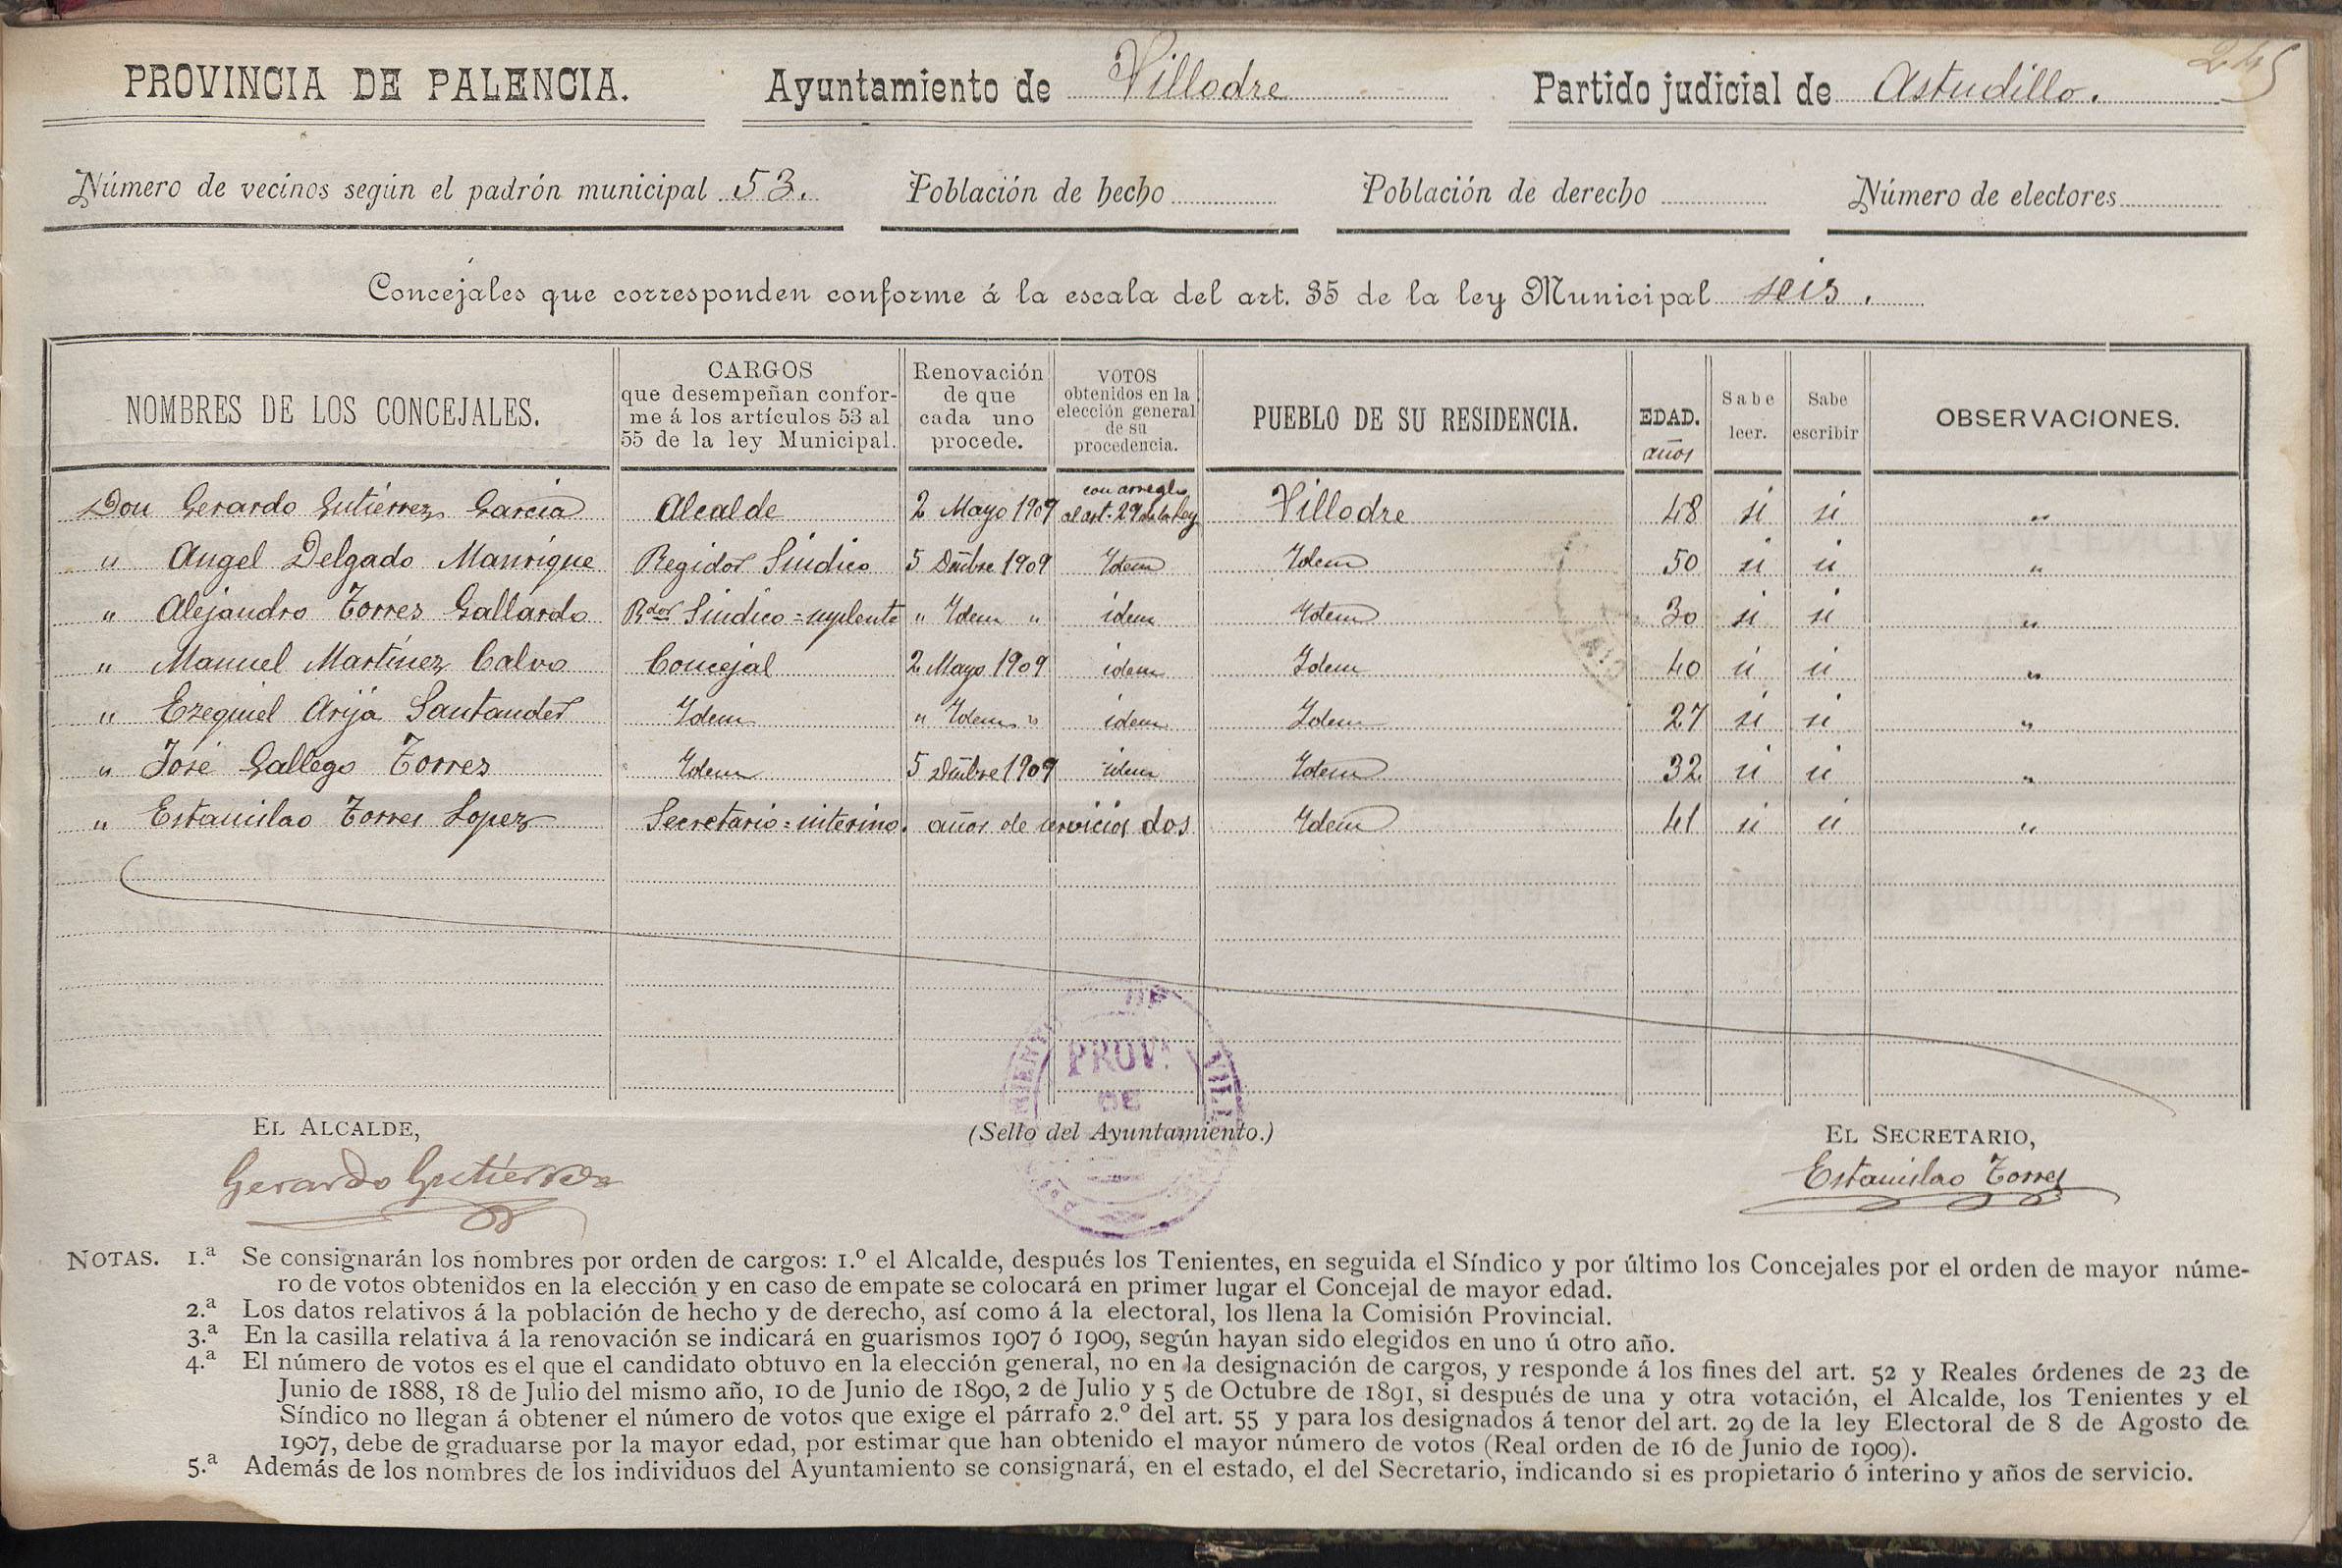 245
PROVINCIA DE PALENCIA. Ayuntamiento de Villodre Partido judicial de Astudillo.
Número de vecinos según el padrón municipal 53. Población de hecho Población de derecho Número de electores
Concejales que corresponden conforme á la escala del art. 35 de la ley Municipal seis.
NOMBRES DE LOS CONCEJALES.
CARGOS
que desempeñan confor-
me á los artículos 53 al
55 de la ley Municipal.
Renovación
de que
cada uno
procede.
VOTOS
obtenidos en la
elección general
de su
procedencia.
PUEBLO DE SU RESIDENCIA.
EDAD.
años
Sabe
leer.
Sabe
escribir
OBSERVACIONES.
Don Gerardo Gutiérrez García Alcalde 2 Mayo 1909 con arreglo al art. 29 de la Ley Villodre 48 si si "
" Angel Delgado Manrique Regidor Sindico 5 Dbre 1909 Idem Idem 50 si si "
" Alejandro Torres Gallardo Rdor Sindico=suplente " Idem " idem Idem 30 si si "
" Manuel Martínez Calvo Concejal 2 Mayo 1909 idem Idem 40 si si "
" Ezequiel Arija Santander Idem " Idem " idem Idem 27 si si "
" José Gallego Torres Idem 5 Dbre 1909 idem Idem 32 si si "
" Estanislao Torres Lopez Secretario=interino. años de servicios dos Idem 41 si si "
DE
PROV.ª
DE
EL ALCALDE, (Sello del Ayuntamiento.) EL SECRETARIO,
Gerardo Gutiérrez Estanislao Torres
NOTAS. 1.ª Se consignarán los nombres por orden de cargos: 1.º el Alcalde, después los Tenientes, en seguida el Síndico y por último los Concejales por el orden de mayor núme-
ro de votos obtenidos en la elección y en caso de empate se colocará en primer lugar el Concejal de mayor edad.
2.ª Los datos relativos á la población de hecho y de derecho, así como á la electoral, los llena la Comisión Provincial.
3.ª En la casilla relativa á la renovación se indicará en guarismos 1907 ó 1909, según hayan sido elegidos en uno ú otro año.
4.ª El número de votos es el que el candidato obtuvo en la elección general, no en la designación de cargos, y responde á los fines del art. 52 y Reales órdenes de 23 de
Junio de 1888, 18 de Julio del mismo año, 10 de Junio de 1890, 2 de Julio y 5 de Octubre de 1891, si después de una y otra votación, el Alcalde, los Tenientes y el
Síndico no llegan á obtener el número de votos que exige el párrafo 2.º del art. 55 y para los designados á tenor del art. 29 de la ley Electoral de 8 de Agosto de
1907, debe de graduarse por la mayor edad, por estimar que han obtenido el mayor número de votos (Real orden de 16 de Junio de 1909).
5.ª Además de los nombres de los individuos del Ayuntamiento se consignará, en el estado, el del Secretario, indicando si es propietario ó interino y años de servicio.